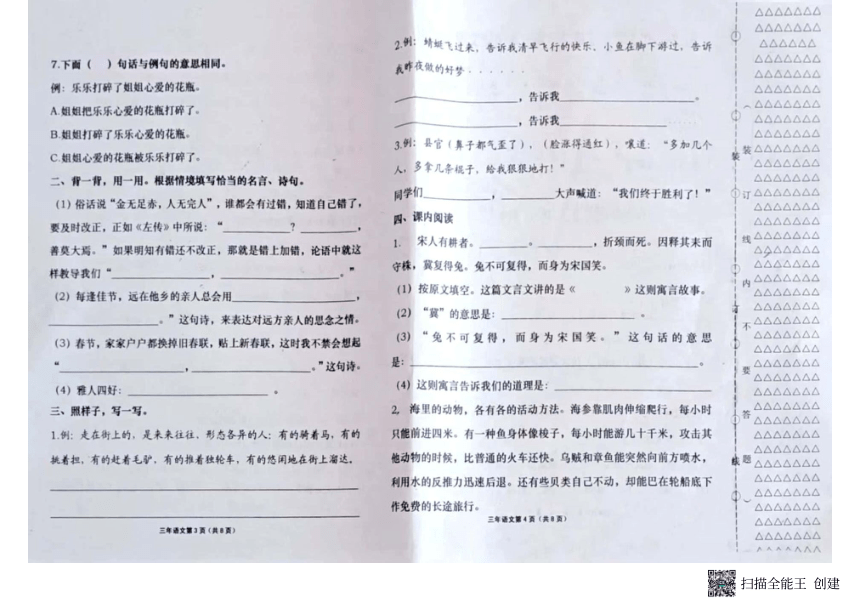 7.下面（ ）句话与例句的意思相同。
例：乐乐打碎了姐姐心爱的花瓶。
A.姐姐把乐乐心爱的花瓶打碎了。
B.姐姐打碎了乐乐心爱的花瓶。
C.姐姐心爱的花瓶被乐乐打碎了。
二、背一背，用一用。根据情境填写恰当的名言、诗句。
（1）俗话说“金无足赤，人无完人”，谁都会有过错，知道自己错了，
要及时改正，正如《左传》中所说：“____________？__________，
善莫大焉。”如果明知有错还不改正，那就是错上加错，论语中就这
样教导我们“________________，____________________。”
（2）每逢佳节，远在他乡的亲人总会用____________________，
________________。”这句诗，来表达对远方亲人的思念之情。
（3）春节，家家户户都换掉旧春联，贴上新春联，这时我不禁会想起
“____________________，____________________。”这句诗。
（4）雅人四好：______________________。
三、照样子，写一写。
1.例：走在街上的，是来来往往、形态各异的人：有的骑着马，有的
挑着担，有的赶着毛驴，有的推着独轮车，有的悠闲地在街上溜达。
三年语文第3页（共8页）
2.例：蜻蜓飞过来，告诉我清早飞行的快乐。小鱼在脚下游过，告诉
我昨夜做的好梦······
____________________，告诉我______________________。
____________________，告诉我________________
3.例：县官（鼻子都气歪了），（脸涨得通红），嚷道：“多加几个
人，多拿几条棍子，给我狠狠地打！”
同学们____________，__________大声喊道：“我们终于胜利了！”
四、课内阅读
1. 宋人有耕者。________。__________，折颈而死。因释其耒而
守株，冀复得兔。兔不可复得，而身为宋国笑。
（1）按原文填空。这篇文言文讲的是《 》这则寓言故事。
（2）“冀”的意思是：______________________。
（3）“兔不可复得，而身为宋国笑。”这句话的意思
是：__________________________________________________。
（4）这则寓言告诉我们的道理是：__________________________
2, 海里的动物，各有各的活动方法。海参靠肌肉伸缩爬行，每小时
只能前进四米。有一种鱼身体像梭子，每小时能游几十千米，攻击其
他动物的时候，比普通的火车还快。乌贼和章鱼能突然向前方喷水，
利用水的反推力迅速后退。还有些贝类自己不动，却能巴在轮船底下
作免费的长途旅行。
三年语文第4页（共8页）
（装订线内不要答题）
装
订
线
扫描全能王 创建